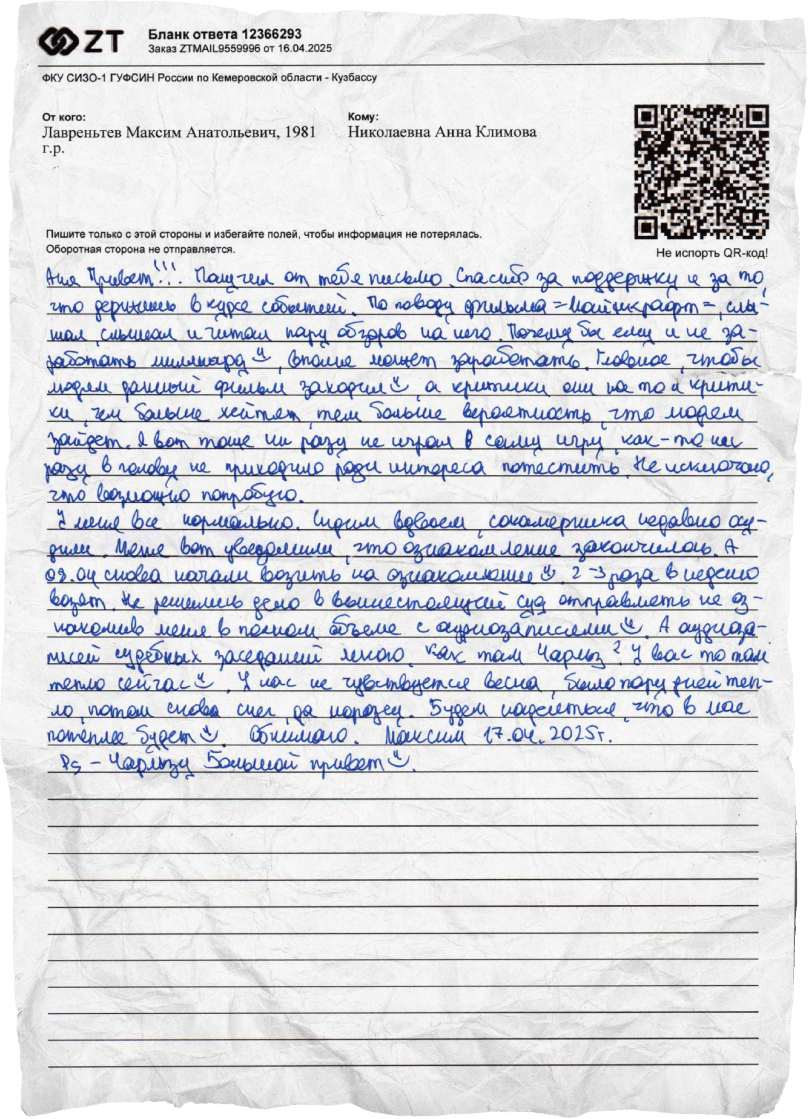 ZT
Бланк ответа 12366293
Заказ ZTMAIL9559996 от 16.04.2025
ФКУ СИЗО-1 ГУФСИН России по Кемеровской области - Кузбассу
От кого:
Лавреньтев Максим Анатольевич, 1981
г.р.
Кому:
Николаевна Анна Климова
Не испорть QR-код!
Пишите только с этой стороны и избегайте полей, чтобы информация не потерялась.
Оборотная сторона не отправляется.
Аня Привет!!! Получил от тебя письмо. Спасибо за поддержку и за то,
что держишь в курсе событий. По поводу фильма =Майнкрафт=, слы-
шал, слышал и читал пару обзоров на него. Почему бы ему и не за-
работать миллиард, вполне может заработать. Главное, чтобы
людям данный фильм заходил, а критики они на то и крити-
ки, чем больше хейтят, тем больше вероятность, что людям
зайдет. Я вот тоже ни разу не играл в саму игру, как-то ни
разу в голову не приходило ради интереса потестить. Не исключаю,
что возможно попробую.
У меня все нормально. Сидим вдвоем, сокамерника недавно осу-
дили. Меня вот уведомили, что ознакомление закончилось. А
09.04 снова начали возить на ознакомление. 2-3 раза в неделю
возят. Не решились дело в вышестоящий суд отправлять не оз-
накомив меня в полном объеме с аудиозаписями. А аудиоза-
писей судебных заседаний много. Как там Чарльз? У вас то там
тепло сейчас. У нас не чувствуется весна, было пару дней теп-
ло, потом снова снег, да морозец. Будем надеяться, что в мае
потеплее будет. Обнимаю. Максим 17.04.2025г.
Ps - Чарльзу Большой привет.